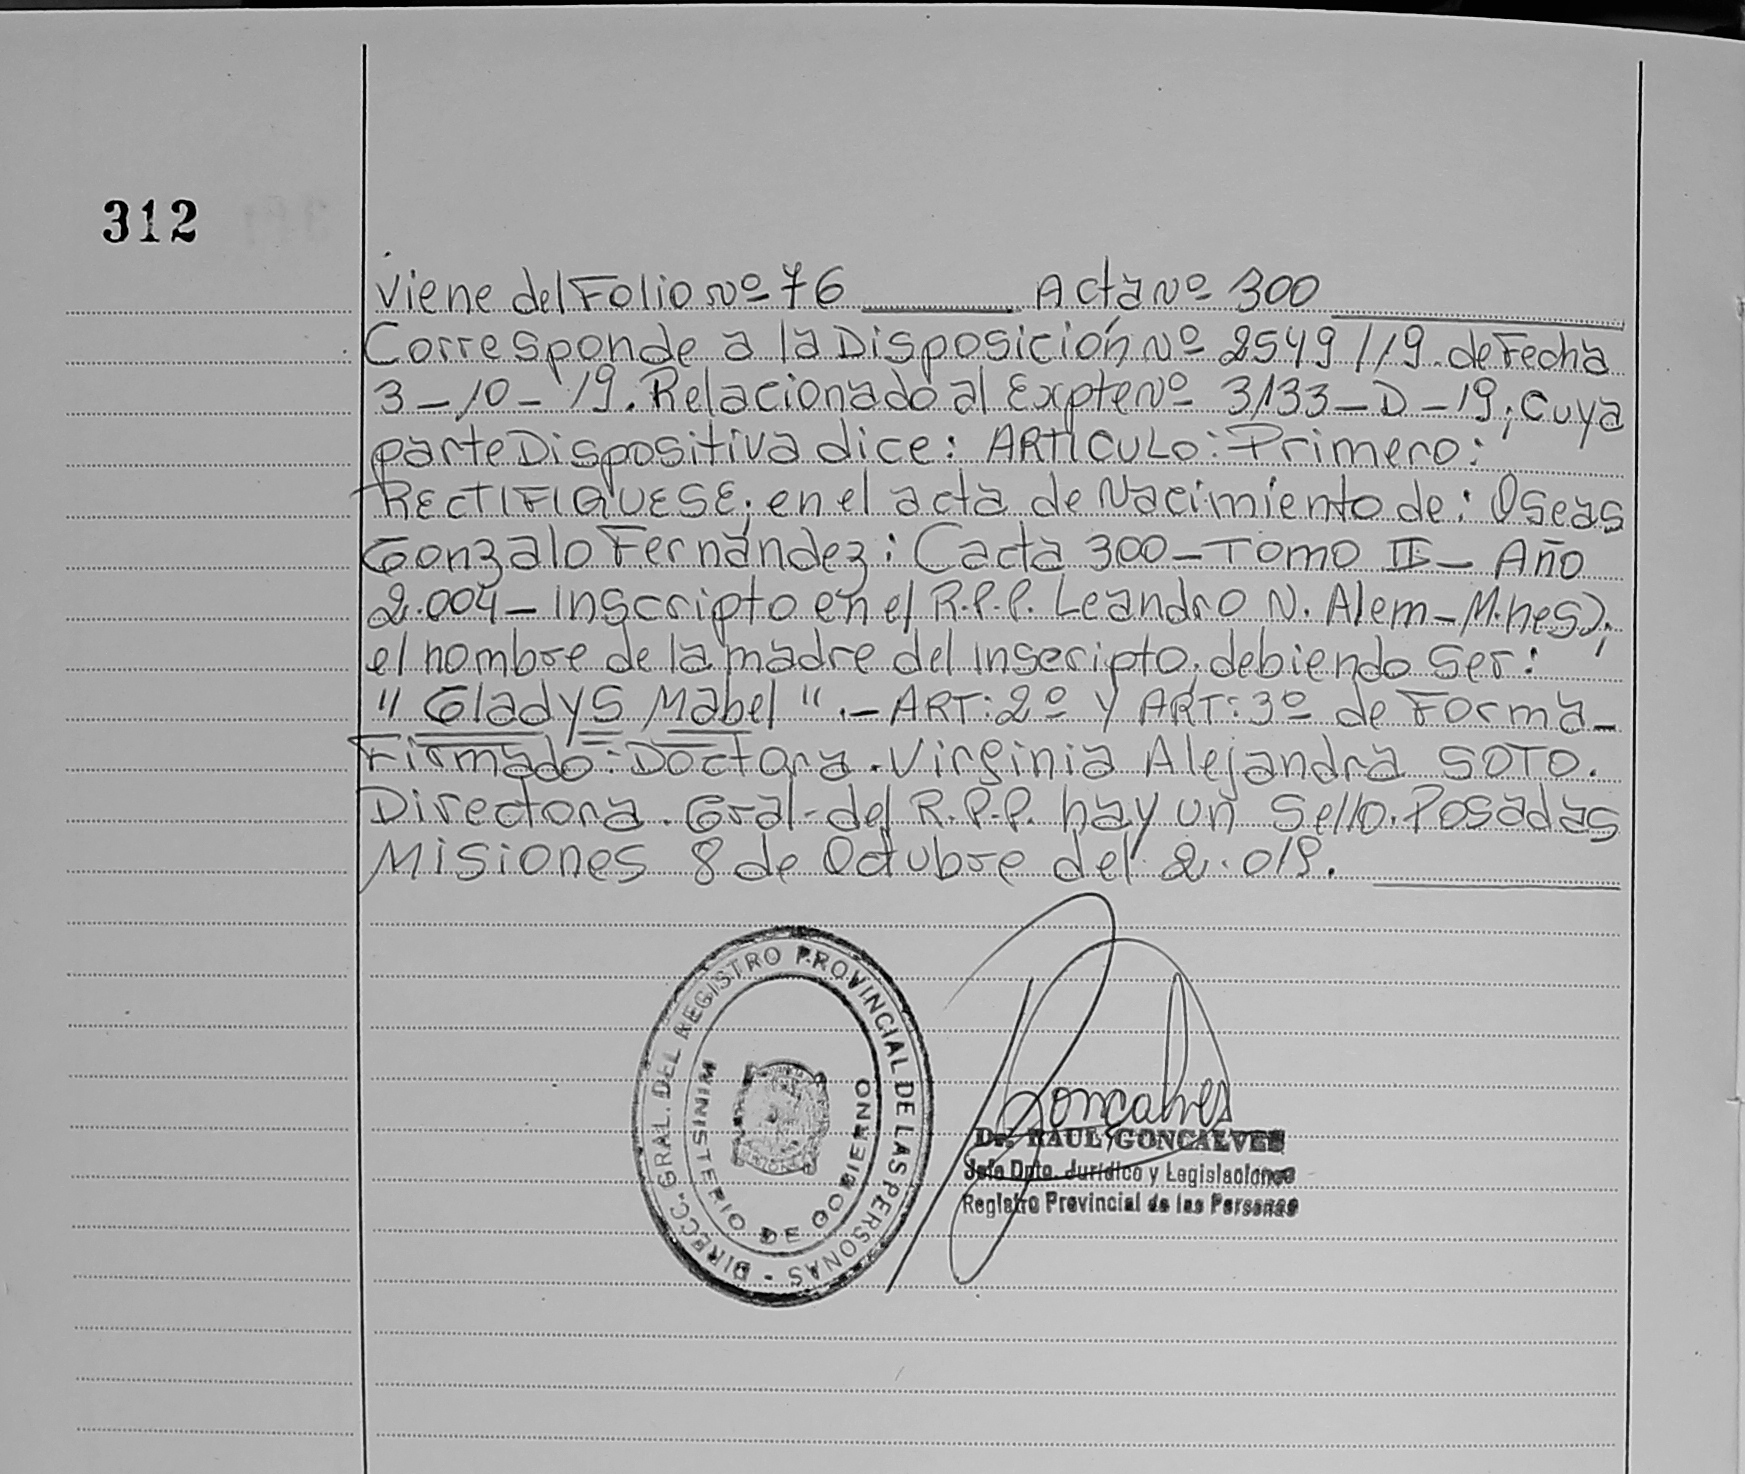 312
Viene del Folio Nº 76 Acta Nº 300
Corresponde a la Disposición Nº 2549/19. de Fecha
3-10-19. Relacionado al Expte Nº 3133-D-19; cuya
parte Dispositiva dice: ARTÍCULO: Primero:
RECTIFIQUESE; en el acta de Nacimiento de: Oseas
Gonzalo Fernández; (acta 300-Tomo II- Año
2.004- Inscripto en el R.P.P. Leandro N. Alem-M.nes),
el nombre de la madre del inscripto, debiendo Ser:
"Gladys Mabel".- ART:2º y ART:3º de Forma-
Firmado: Doctora. Virginia Alejandra SOTO.
Directora. Gral- del R.P.P. hay un Sello. Posadas
Misiones 8 de Octubre del 2.019.
DIRECC. GRAL. DEL REGISTRO PROVINCIAL DE LAS PERSONAS -
MINISTERIO DE GOBIERNO
Goncalves
Dr. RAUL GONCALVES
Jefe Dpto. Jurídico y Legislaciones
Registro Provincial de las Personas